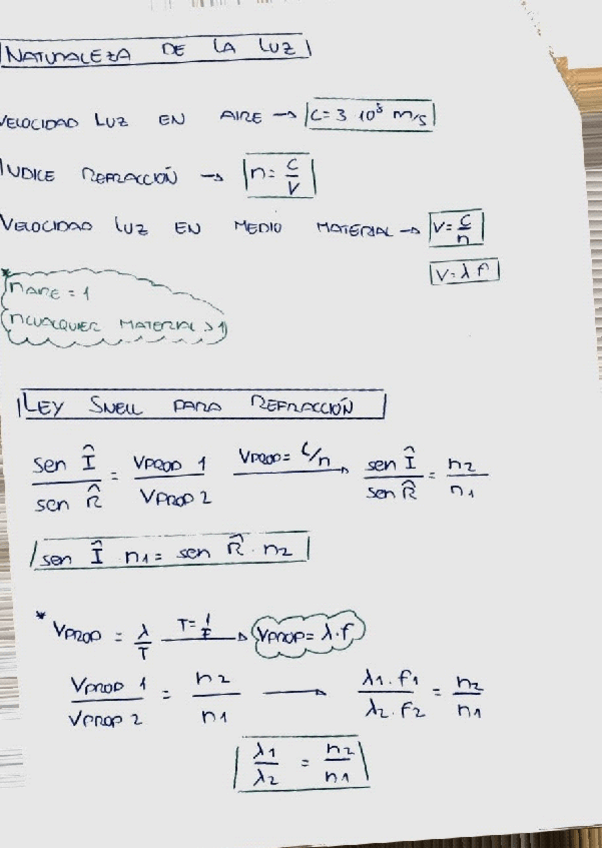 NATURALEZA DE LA LUZ
VELOCIDAD LUZ EN AIRE → C = 3 10⁸ m/s
ÍNDICE REFRACCIÓN → n = C/V
VELOCIDAD LUZ EN MEDIO MATERIAL → V = C/n
V = λ f
* n AIRE = 1
n CUALQUIER MATERIAL > 1
LEY SNELL PARA REFRACCIÓN
sen Î / sen R̂ = VPROP 1 / VPROP 2 VPROP = C/n → sen Î / sen R̂ = n2 / n1
sen Î n1 = sen R̂ · n2
* VPROP = λ/T T = 1/F → VPROP = λ · f
VPROP 1 / VPROP 2 = n2 / n1 → λ1 · f1 / λ2 · F2 = n2 / n1
λ1 / λ2 = n2 / n1